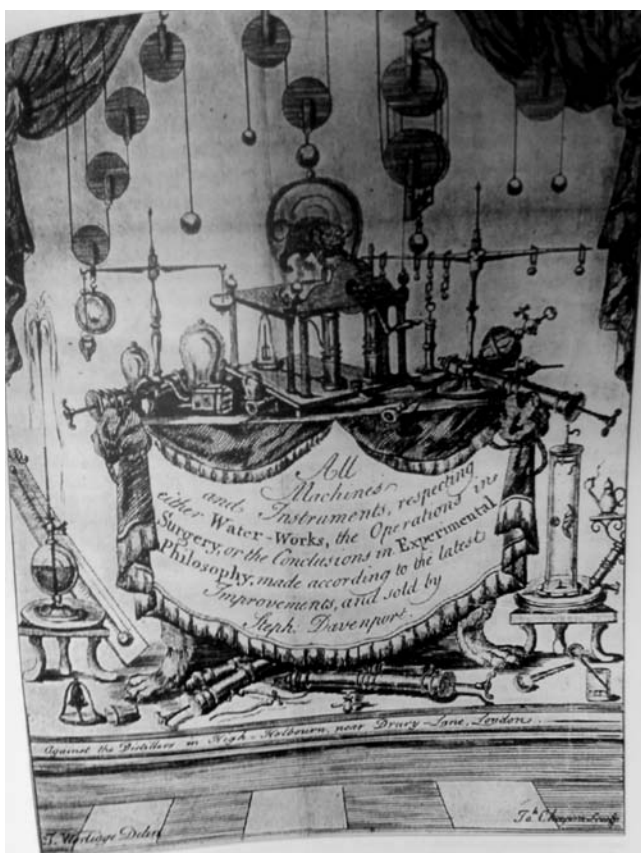 All
Machines
and Instruments, respecting
either Water-Works, the Operations in
Surgery, or the Conclusions in Experimental
Philosophy, made according to the latest
Improvements, and sold by
Steph. Davenport.
Against the Distillers in High-Holbourn, near Drury-Lane, London.
T. Worlidge Delin
Jo.h Chapon Sculp